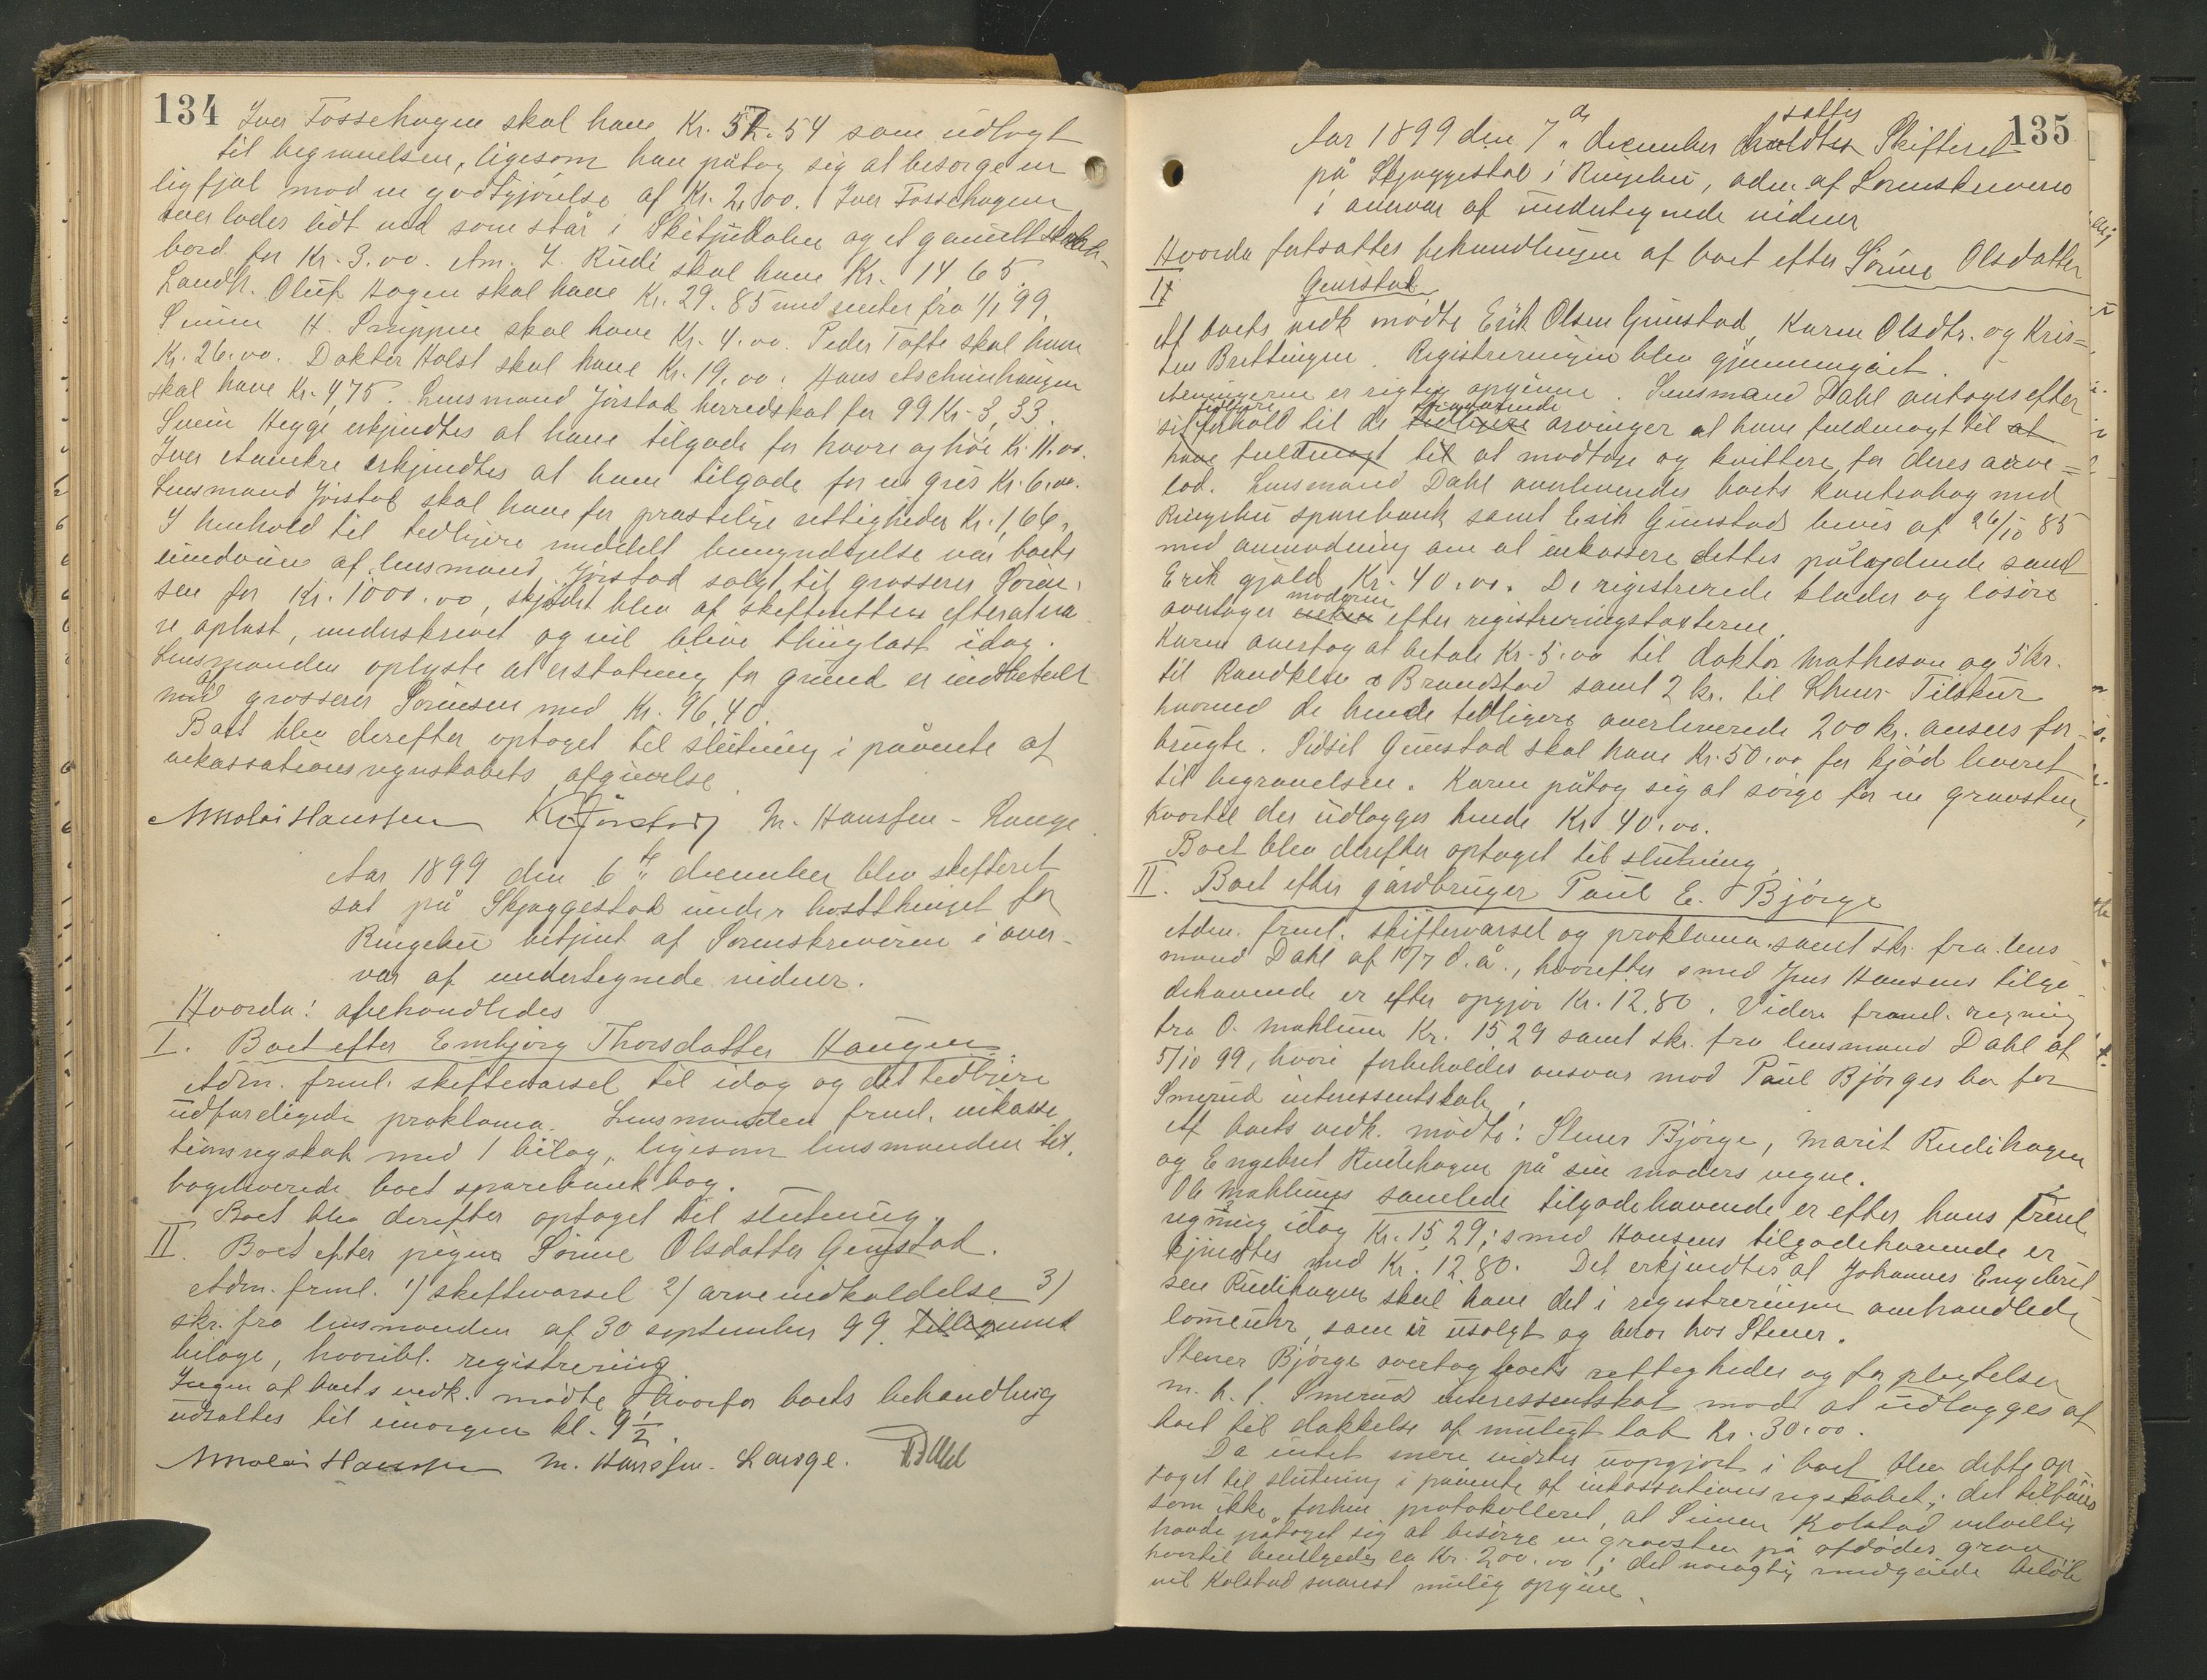 134
Iver Fossehagen skal have Kr. 52.54 som udlagt
til begravelsen, ligesom han påtog sig at besørge en
ligfjøl mod en godtgjørelse af Kr. 2.00. Iver Fossehagen
overlodes lidt ved som står i Skitjudalen og et gammelt
bord for Kr. 3.00. Am. L. Rudi skal have Kr. 14 65.
Landh. Oluf Hagen skal have Kr. 29.85 med renter fra 1/1 99.
Simen H. Snippen skal have Kr. 4.00. Peder Tofte skal have
Kr. 26.00. Doktor Holst skal have Kr. 19.00. Hans Aschimhaugen
skal have Kr. 4,75. Lensmand Jörstad herredskat for 99 Kr. 3,33.
Svein Hegge erkjendtes at have tilgode for havre og høi Kr. 11.00.
Iver Aamkre erkjendtes at have tilgode for en gris Kr. 6.00.
Lensmand Jörstad skal have for præstelige rettigheder Kr. 1,66.
I henhold til tedligere meddelt bemyndigelse var boets
eiendom af lensmand Jörstad solgt til grosserer Sören-
sen for Kr. 1000.00, skjødet blev af skifteretten efter at væ-
re oplæst, underskrevet og vil blive thinglæst idag.
Lensmanden oplyste at erstatning for grund er indbetalt
af grosserer Sörensen med Kr. 96.40.
Boet blev derefter optaget til slutning i påvente af
inkassationsregnskabets afgivelse.
Nicolai Hanssen K. Jörstad M. Hanssen - Lauge.
Aar 1899 den 6te december blev skifteret
sat på Skjæggestad under høstthinget for
Ringebu betjent af Sorenskriveren i over-
vær af undertegnede vidner.
Hvorda: afbehandledes
I. Boet efter Embjørg Thorsdatter Haugen
Adm. freml. skiftevarsel til idag og det tedligere
udfærdigede proklama. Lensmanden freml. inkassa-
tionsregskab med 1 bilag, ligesom lensmanden til-
bageleverede boet sparebankbog.
Boet blev derefter optaget til slutning.
II. Boet efter pigen Sörine Olsdatter Genstad.
Adm. freml. 1) skiftevarsel 2) arveindkaldelse 3)
skr. fra lensmanden af 30 september 99
bilage, hvoribl. registrering
Ingen af boets vedk. mødte Hvorfor boets behandling
udsattes til imorgen kl. 9 1/2.
Nicolai Hanssen M. Hanssen - Lauge. Dahl
135
sattes
Aar 1899 den 7de december holdtes Skifteret
på Skjæggestad i Ringebu, adm. af Sorenskriveren
i overvær af undertegnede vidner
Hvorda fortsattes behandlingen af boet efter Sörine Olsdatter
Genstad
Af boets vedk mødte Erik Olsen Gunstad, Karen Olsdtr. og Kris-
ten Brettingen. Registreringen blev gjennemgået.
Arvingerne er rigtig opgivne. Lensmand Dahl antoges efter
sit forhold til de tedligere arvinger at have fuldmagt til at
have fuldmagt til at modtage og kvittere for deres arve-
lod. Lensmand Dahl overleveredes boets kontrabog med
Ringebu sparebank samt Erik Gunstads bevis af 26/10 85
med anmodning om at inkassere dettes pålydende samt
Erik gjæld Kr. 40.00. De registrerede klæder og løsøre
moderen
overtager efter registreringstaxterne.
Karen overtog at betale Kr. 5.00 til doktor Matheson og 5 kr.
til Randklev & Brandstad samt 2 kr. til Tilskur
hvormed de hende tedligere overleverede 200 kr. ansees for-
brugte. Sidsil Gunstad skal have Kr. 50.00 for kjød leveret
til begravelsen. Karen påtog sig at sörge for en gravsten,
hvortil der udlægges hende Kr. 40.00.
Boet blev derefter optaget til slutning.
II. Boet efter gårdbruger Paul E. Bjørge
Adm. freml. skiftevarsel og proklama samt skr. fra lens-
mand Dahl af 10/7 d. å., hvorefter smed Jens Hansens tilgo-
dehavende er efter opgjør Kr. 12.80. Videre freml. regning
fra O. Mæhlum Kr. 15 29 samt skr. fra lensmand Dahl af
5/10 99, hvori forbeholdes ansvar mod Paul Bjørges bo for
Smerud interessentskab.
Af boets vedk. mødte: Stener Bjørge, Marit Rudihagen
og Engebret Rudihagen på sin moders vegne.
Ole Mæhlums samlede tilgodehavende er efter hans freml.
regning idag Kr. 15 29; smed Hansens tilgodehavende er-
kjendtes med Kr. 12 80. Det erkjendtes at Johannes Engebret-
sen Rudihagen skal have det i registreringen omhandlede
lommeuhr, som er usolgt og beror hos Stener.
Stener Bjørge overtog boets rettigheder og forpligtelser
m. h. t. Smeruds interessentskab mod at udlægges af
boet til dækkelse af muligt tab Kr. 30.00.
Da intet mere vidstes uopgjort i boet blev dette op-
taget til slutning i påvente af inkassationsregskabet; det tilføies
som ikke forhen protokolleret, at Simen Kolstad velvillig
havde påtaget sig at besörge en gravsten på afdødes grav
hvortil bevilgedes ca Kr. 200.00; det nöiagtig medgåede belöb
vil Kolstad snarest mulig opgive.